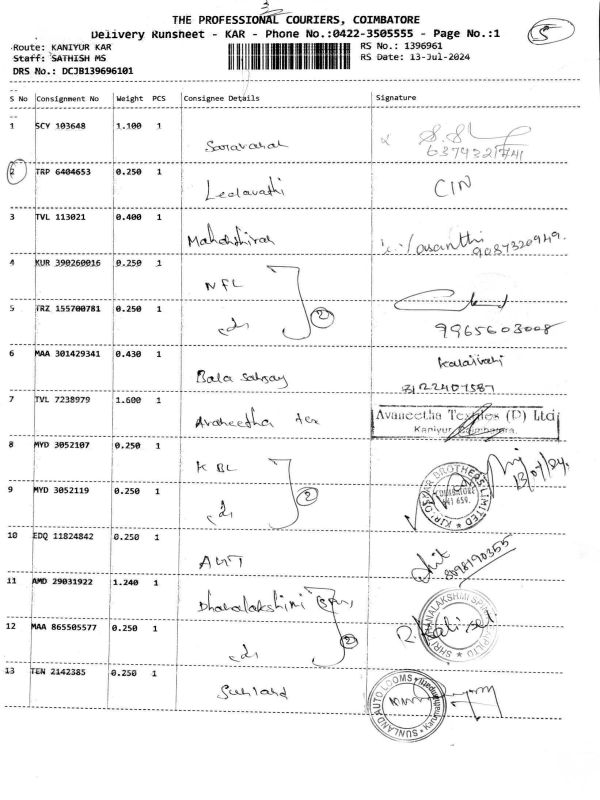 3
THE PROFESSIONAL COURIERS, COIMBATORE
Delivery Runsheet - KAR - Phone No.:0422-3505555 - Page No.:1
5
Route: KANIYUR KAR
RS No.: 1396961
Staff: SATHISH MS
RS Date: 13-Jul-2024
DRS No.: DCJB139696101
S No Consignment No Weight PCS Consignee Details Signature
1 SCY 103648 1.100 1 Saravanan
6374321741
2 TRP 6404653 0.250 1 Leelavathi CIN
3 TVL 113021 0.400 1 Vasanthi
9087320949.
4 KUR 390260016 0.250 1 NFL
2
5 TRZ 155700781 0.250 1
9965603008
6 MAA 301429341 0.430 1 Bala
8122407587
7 TVL 7238979 1.600 1 Avaneetha Tex
Avaneetha Textiles (P) Ltd
Kaniyur, Coimbatore.
8 MYD 3052107 0.250 1 KBL
13/07/24.
2
KIRLOSKAR BROTHERS LIMITED
COIMBATORE
641 659.
9 MYD 3052119 0.250 1
10 EDQ 11824842 0.250 1
8098190355
11 AMD 29031922 1.240 1 Dhanalakshmi
2
12 MAA 865505577 0.250 1
13 TEN 2142385 0.250 1 Sunland
SUNLAND AUTO LOOMS